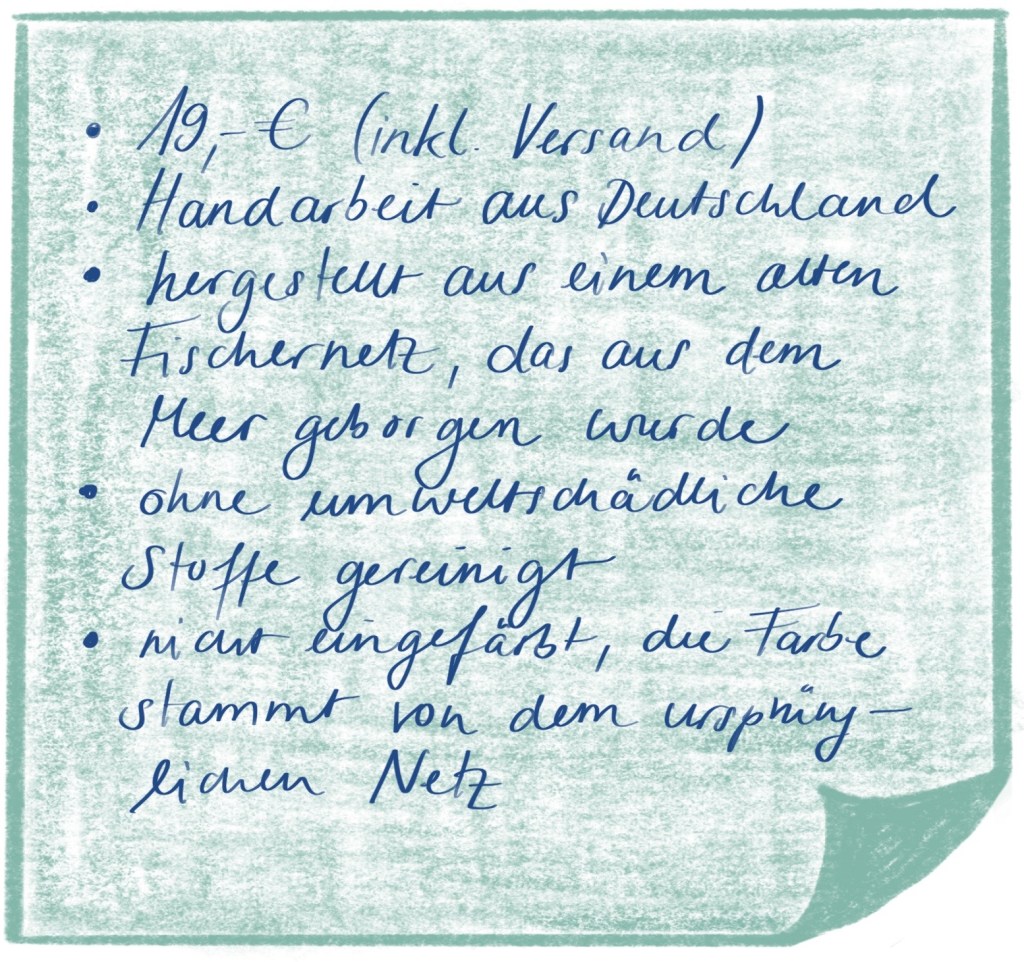 • 19,- € (inkl. Versand)
• Handarbeit aus Deutschland
• hergestellt aus einem alten
Fischernetz, das aus dem
Meer geborgen wurde
• ohne umweltschädliche
Stoffe gereinigt
• nicht eingefärbt, die Farbe
stammt von dem ursprüng-
lichen Netz